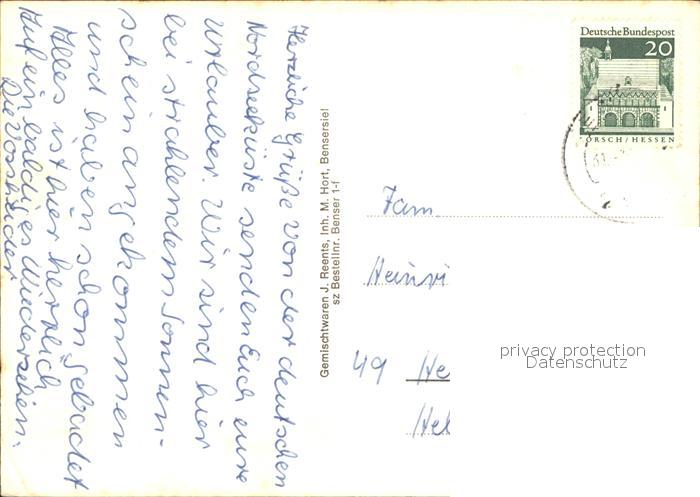 Herzliche Grüße von der deutschen
Nordseeküste senden Euch eure
Urlauber. Wir sind hier
bei strahlendem Sonnen-
schein angekommen
und haben schon gebadet
Alles ist hier herrlich
Auf ein baldiges Wiedersehen.
Die
Gemischtwaren J. Reents, Inh. M. Hort, Bensersiel
sz Bestellnr. Benser 1-f
Deutsche Bundespost
20
LORSCH/HESSEN
Fam.
Heinri
49 He
Hel
privacy protection
Datenschutz